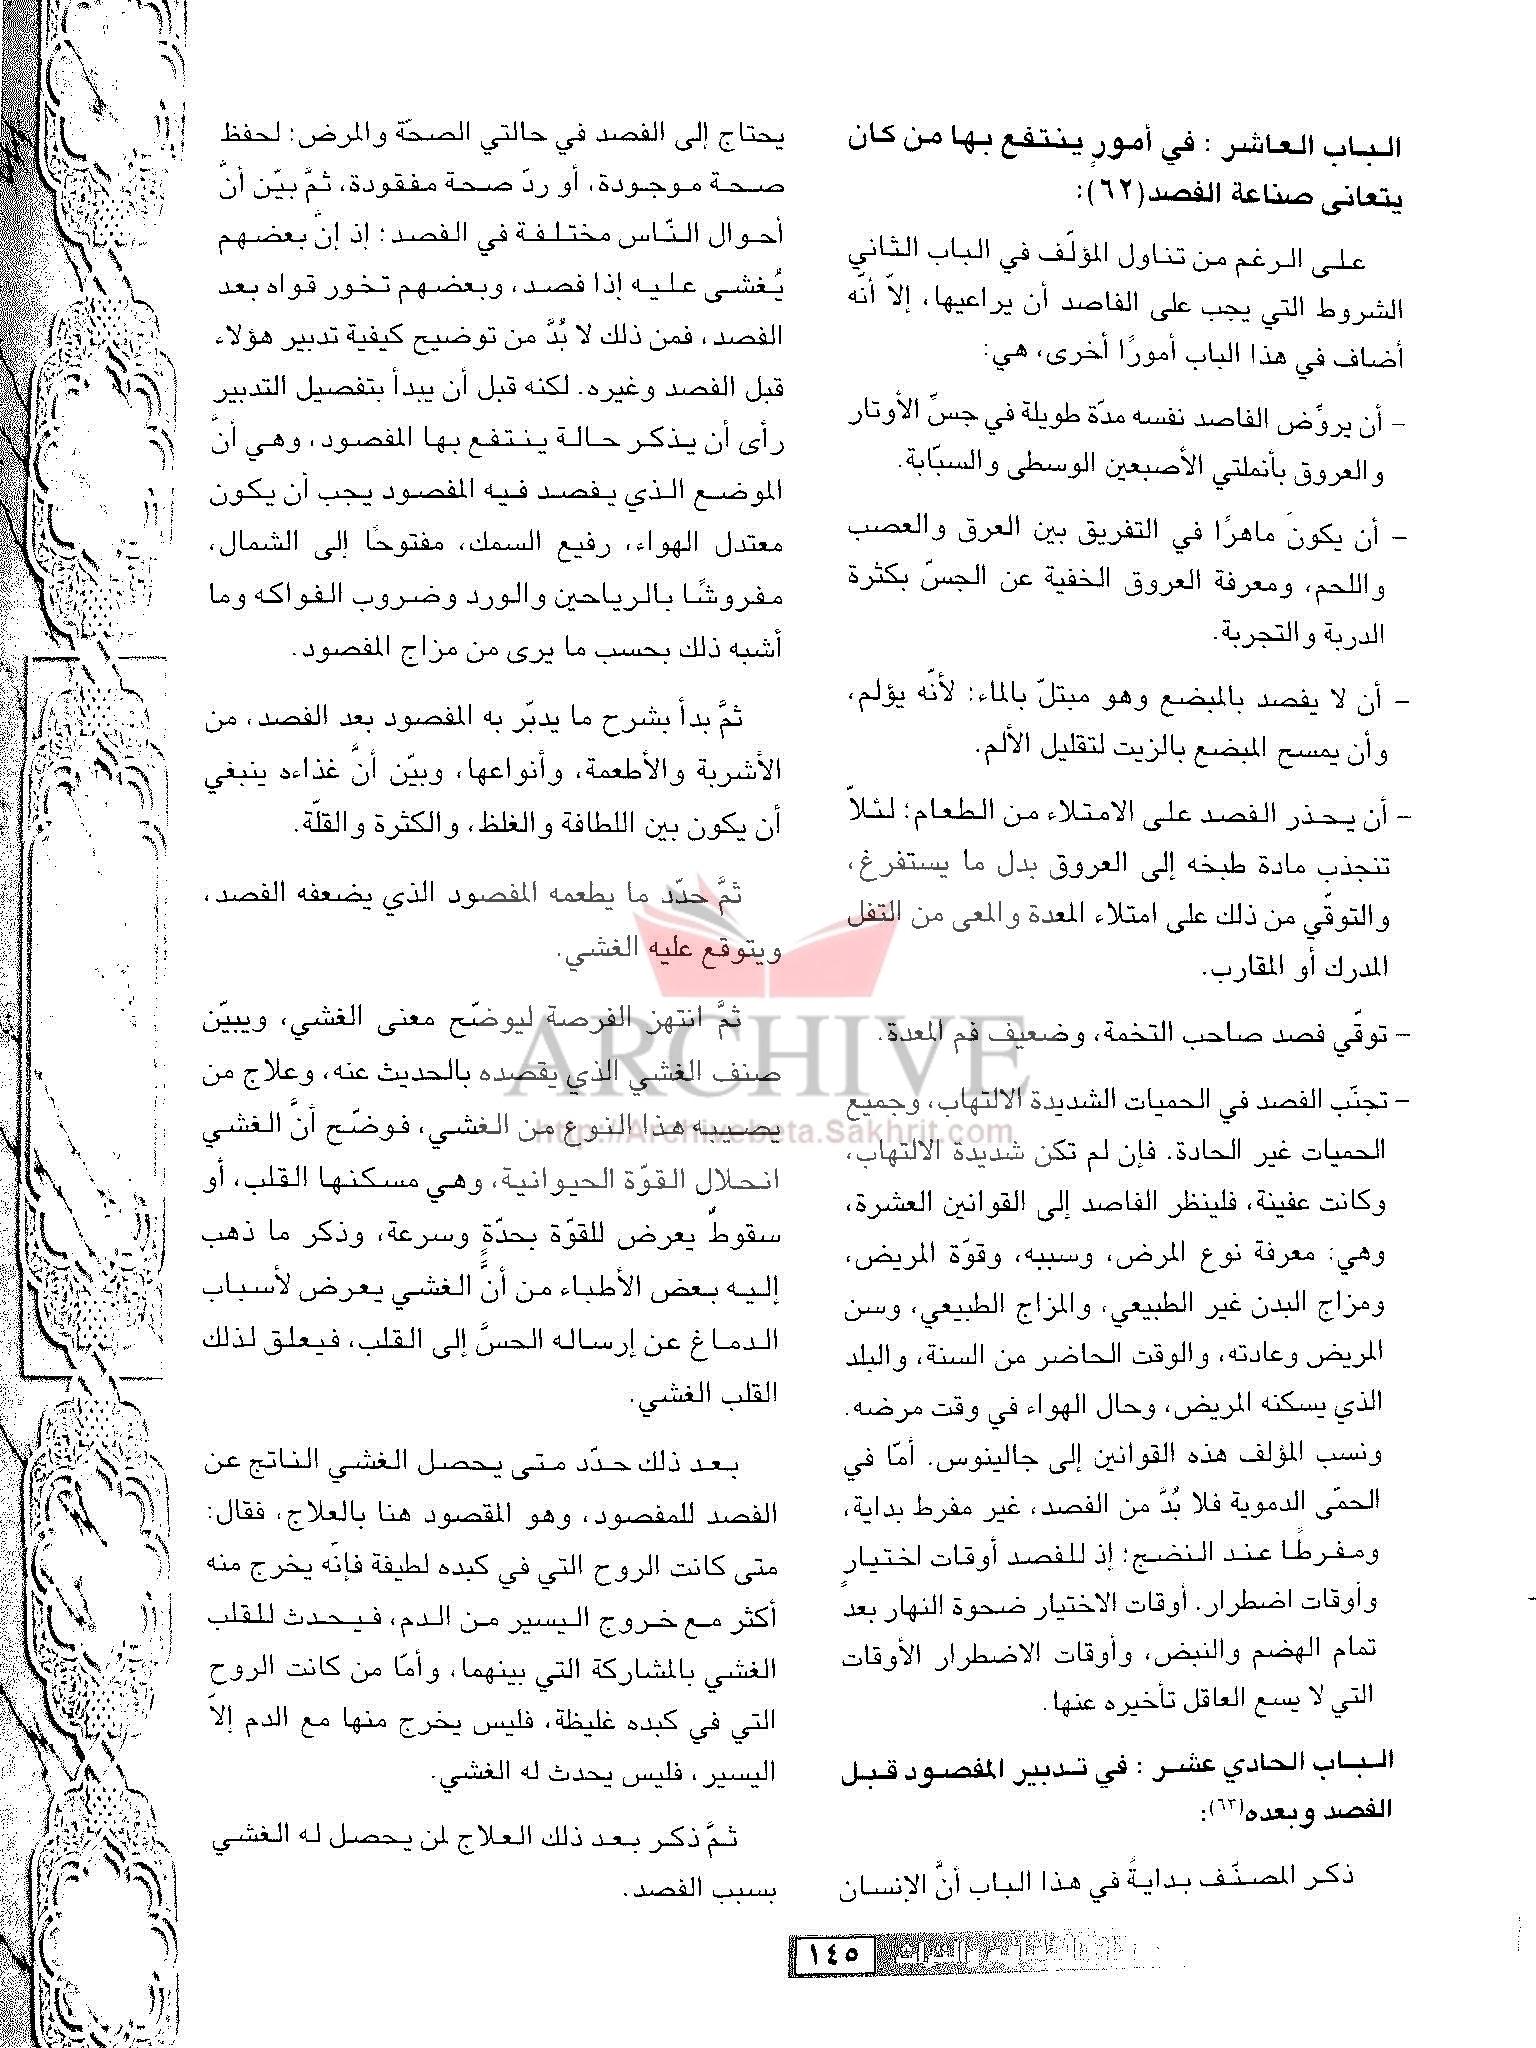 الباب العاشر : في أمورٍ ينتفع بها من كان
يتعانى صناعة الفصد(٦٢):
على الرغم من تناول المؤلّف في الباب الثاني
الشروط التي يجب على الفاصد أن يراعيها، إلاّ أنّه
أضاف في هذا الباب أمورًا أخرى، هي:
– أن يروِّض الفاصد نفسه مدّة طويلة في جسّ الأوتار
والعروق بأنملتي الأصبعين الوسطى والسبّابة.
– أن يكونَ ماهرًا في التفريق بين العرق والعصب
واللحم، ومعرفة العروق الخفية عن الجسّ بكثرة
الدربة والتجربة.
– أن لا يفصد بالمبضع وهو مبتلّ بالماء: لأنّه يؤلم،
وأن يمسح المبضع بالزيت لتقليل الألم.
– أن يحذر الفصد على الامتلاء من الطعام؛ لئلاّ
تنجذب مادة طبخه إلى العروق بدل ما يستفرغ،
والتوقّي من ذلك على امتلاء المعدة والمعى من التفل
المدرك أو المقارب.
– توقّي فصد صاحب التخمة، وضعيف فم المعدة.
– تجنّب الفصد في الحميات الشديدة الالتهاب، وجميع
الحميات غير الحادة. فإن لم تكن شديدة الالتهاب،
وكانت عفينة، فلينظر الفاصد إلى القوانين العشرة،
وهي: معرفة نوع المرض، وسببه، وقوّة المريض،
ومزاج البدن غير الطبيعي، والمزاج الطبيعي، وسن
المريض وعادته، والوقت الحاضر من السنة، والبلد
الذي يسكنه المريض، وحال الهواء في وقت مرضه.
ونسب المؤلف هذه القوانين إلى جالينوس. أمّا في
الحمّى الدموية فلا بُدَّ من الفصد، غير مفرط بداية،
ومفرطًا عند النضج؛ إذ للفصد أوقات اختيارٍ
وأوقات اضطرار. أوقات الاختيار ضحوة النهار بعد
تمام الهضم والنبض، وأوقات الاضطرار الأوقات
التي لا يسع العاقل تأخيره عنها.
الباب الحادي عشر : في تدبير المفصود قبل
الفصد وبعده(٦٣):
ذكر المصنّف بدايةً في هذا الباب أنَّ الإنسان
يحتاج إلى الفصد في حالتي الصحّة والمرض: لحفظ
صحة موجودة، أو ردّ صحة مفقودة، ثمَّ بيّن أنَّ
أحوال النّاس مختلفة في الفصد؛ إذ إنَّ بعضهم
يُغشى عليه إذا فصد، وبعضهم تخور قواه بعد
الفصد، فمن ذلك لا بُدَّ من توضيح كيفية تدبير هؤلاء
قبل الفصد وغيره. لكنه قبل أن يبدأ بتفصيل التدبير
رأى أن يذكر حالة ينتفع بها المفصود، وهي أنَّ
الموضع الذي يفصد فيه المفصود يجب أن يكون
معتدل الهواء، رفيع السمك، مفتوحًا إلى الشمال،
مفروشًا بالرياحين والورد وضروب الفواكه وما
أشبه ذلك بحسب ما يرى من مزاج المفصود.
ثمَّ بدأ بشرح ما يدبّر به المفصود بعد الفصد، من
الأشربة والأطعمة، وأنواعها، وبيّن أنَّ غذاءه ينبغي
أن يكون بين اللطافة والغلظ، والكثرة والقلّة.
ثمَّ حدّد ما يطعمه المفصود الذي يضعفه الفصد،
ويتوقع عليه الغشي.
ثمَّ انتهز الفرصة ليوضّح معنى الغشي، ويبيّن
صنف الغشي الذي يقصده بالحديث عنه، وعلاج من
يصيبه هذا النوع من الغشي، فوضّح أنَّ الغشي
انحلال القوّة الحيوانية، وهي مسكنها القلب، أو
سقوطٌ يعرض للقوّة بحدّةٍ وسرعة، وذكر ما ذهب
إليه بعض الأطباء من أن الغشي يعرض لأسباب
الدماغ عن إرساله الحسَّ إلى القلب، فيعلق لذلك
القلب الغشي.
بعد ذلك حدّد متى يحصل الغشي الناتج عن
الفصد للمفصود، وهو المقصود هنا بالعلاج، فقال:
متى كانت الروح التي في كبده لطيفة فإنّه يخرج منه
أكثر مع خروج اليسير من الدم، فيحدث للقلب
الغشي بالمشاركة التي بينهما، وأمّا من كانت الروح
التي في كبده غليظة، فليس يخرج منها مع الدم إلاّ
اليسير، فليس يحدث له الغشي.
ثمَّ ذكر بعد ذلك العلاج لمن يحصل له الغشي
بسبب الفصد.
ARCHIVE
http://Archivebeta.Sakhrit.com
١٤٥